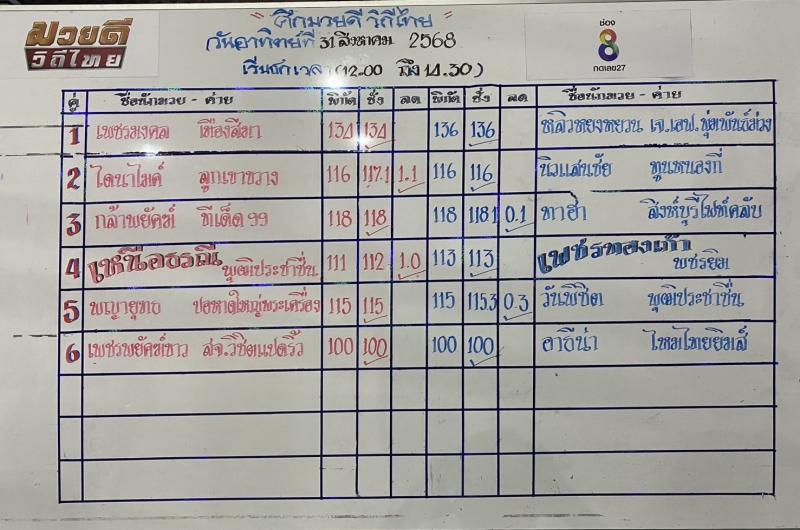 มวยดี
วิถีไทย
"ศึกมวยดี วิถีไทย"
วันอาทิตย์ที่ 31 สิงหาคม 2568
เริ่มชกเวลา (12.00 ถึง 14.30)
ช่อง
8
กดเลข27
คู่ ชื่อนักมวย - ค่าย พิกัด ชั่ง ลด พิกัด ชั่ง ลด ชื่อนักมวย - ค่าย
1 เพชรมงคล เมืองสีมา 134 134 136 136 หลิวหยงหยวน เจ.เอฟ.พุ่มพันธ์ม่วง
2 ไดนาไมค์ ลูกเขาขวาง 116 117.1 1.1 116 116 นิวแสนชัย ทูนหนองกี่
3 กล้าพยัคฆ์ ทีเด็ด99 118 118 118 118.1 0.1 ทาฮา สิงห์บุรีไฟท์คลับ
4 เหนือธรณี พุฒิประชาชื่น 111 112 1.0 113 113 เพชรทองเก้า พชรยิม
5 พญายุทธ ปอหาดใหญ่พระเครื่อง 115 115 115 115.3 0.3 วันพิชิต พุฒิประชาชื่น
6 เพชรพยัคฆ์ขาว สจ.วิชิตแปดริ้ว 100 100 100 100 อาธีน่า ไหมไทยยิมส์